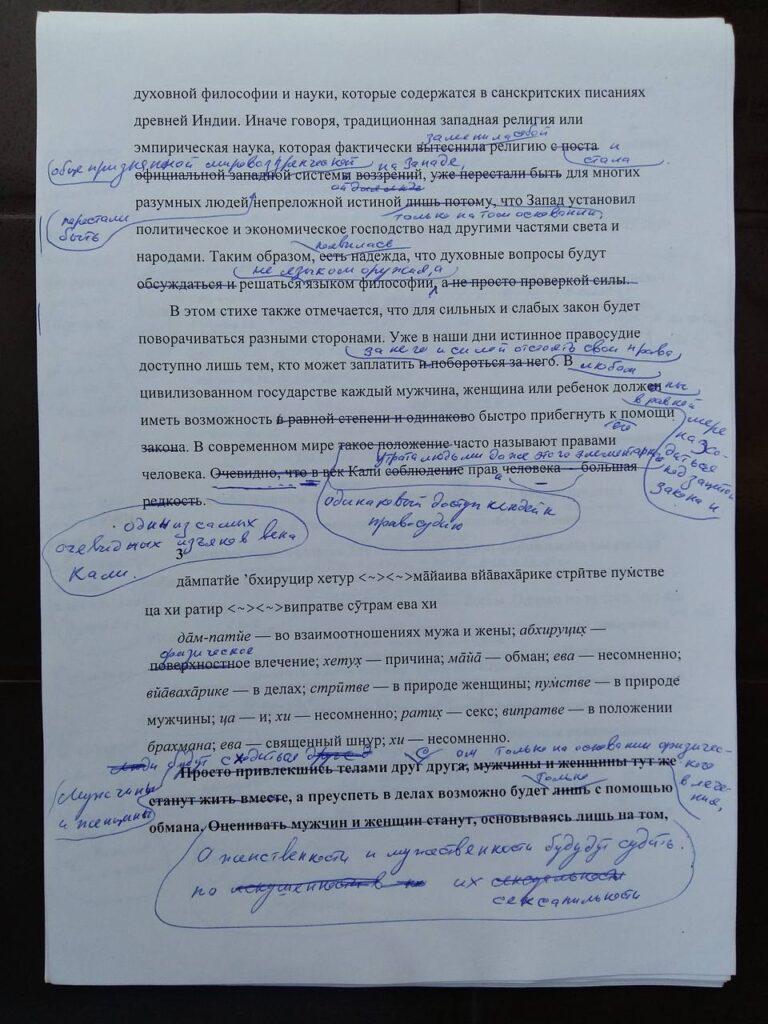 духовной философии и науки, которые содержатся в санскритских писаниях
древней Индии. Иначе говоря, традиционная западная религия или
заменила собой
эмпирическая наука, которая фактически вытеснила религию с поста и
общепризнанной мировоззренческой на Западе, стала
официальной западной системы воззрений, уже перестали быть для многих
разумных людей непреложной истиной лишь потому, что Запад установил
перестали быть
только на том основании,
политическое и экономическое господство над другими частями света и
появилась
народами. Таким образом, есть надежда, что духовные вопросы будут
не языком оружия, а
обсуждаться и решаться языком философии, а не просто проверкой силы.
В этом стихе также отмечается, что для сильных и слабых закон будет
поворачиваться разными сторонами. Уже в наши дни истинное правосудие
за него и силой отстоять свои права
доступно лишь тем, кто может заплатить и побороться за него. В любом
цивилизованном государстве каждый мужчина, женщина или ребенок должен ны
в равной
иметь возможность в равной степени и одинаково быстро прибегнуть к помощи
мере находиться под защитой закона и
закона. В современном мире такое положение часто называют правами
человека. Очевидно, что в век Кали соблюдение прав человека - большая
утрата людьми даже этого элементарн
редкость.
одинаковый доступ людей к
правосудию
один из самых
очевидных изъянов века
Кали.
3
да̄мпатйе ’бхируцир хетур <~><~>ма̄йаива вйа̄ваха̄рике стрӣтве пум̇стве
ца хи ратир <~><~>випратве сӯтрам ева хи
да̄м-патйе — во взаимоотношениях мужа и жены; абхируцих̣ —
физическое
поверхностное влечение; хетух̣ — причина; ма̄йа̄ — обман; ева — несомненно;
вйа̄ваха̄рике — в делах; стрӣтве — в природе женщины; пум̇стве — в природе
мужчины; ца — и; хи — несомненно; ратих̣ — секс; випратве — в положении
брахмана; ева — священный шнур; хи — несомненно.
Люди будут сходиться друг с ом только на основании физического влечения,
Мужчины
и женщины
Просто привлекшись телами друг друга, мужчины и женщины тут же
только
станут жить вместе, а преуспеть в делах возможно будет лишь с помощью
обмана. Оценивать мужчин и женщин станут, основываясь лишь на том,
О женственности и мужественности будут судить
по их
сексапильности